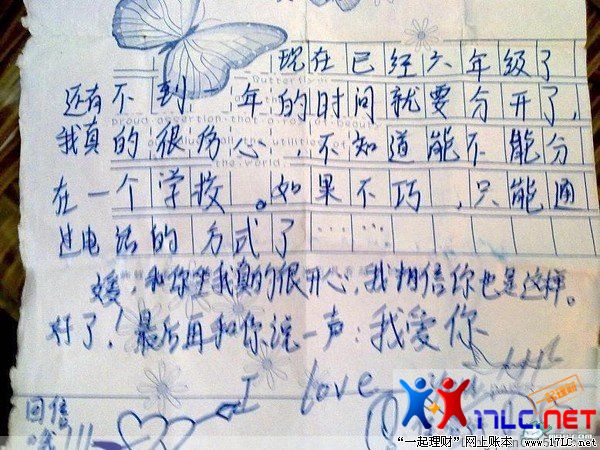 现在已经六年级了
还有不到一年的时间就要分开了,
我真的很伤心,不知道能不能分
在一个学校。如果不巧,只能通
过电话的方式了……
媛,和你坐我真的很开心,我相信你也是这样。
好了!最后再和你说一声:我爱你
I love you
回信
哦!!!
17LC.NET
“一起理财”网上账本 www.17LC.net